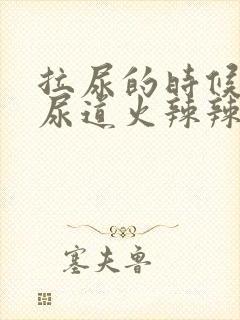 拉尿的時候
尿道火辣辣
塞夫魯